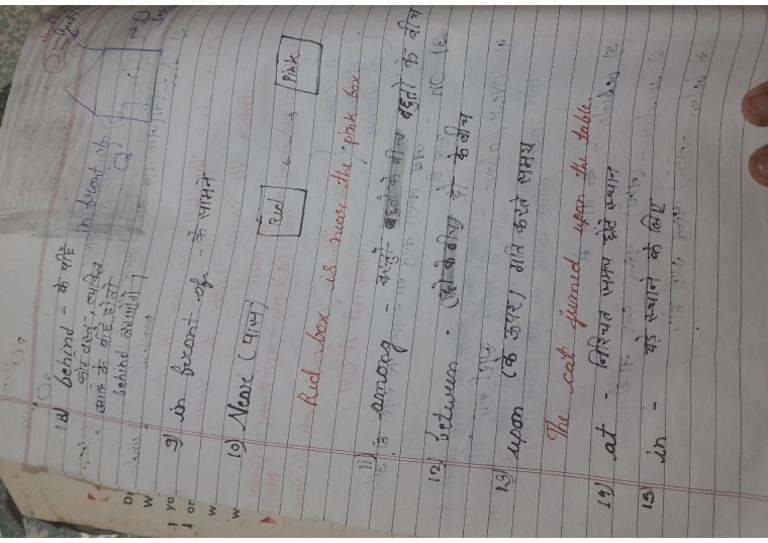 18) behind - के पीछे
कोई वस्तु, व्यक्ति
आदि के पीछे हो तो
behind लगायेंगे।
in front of
9) in front of - के सामने
10) Near (पास)
Red
Pink
Red box is near the pink box
11) among - बहुतो के बीच
12) between - (दो के बीच) दो के बीच
13) upon (के ऊपर) गति करते समय
The cat jumed upon the table.
14) at - निश्चित समय छोटे स्थान
15) in - बड़े स्थान के लिए